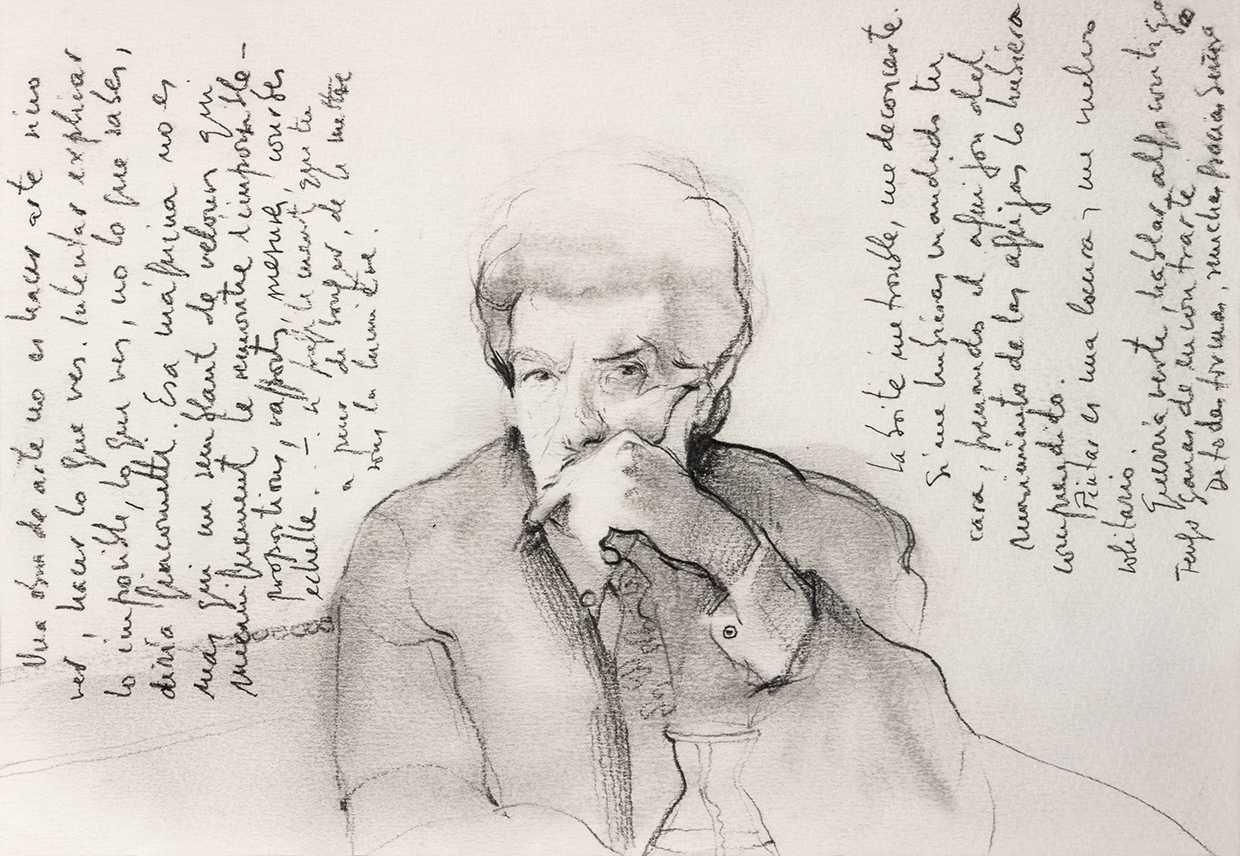 Una obra de arte no es hacer arte sino
ver, hacer lo que ves. Intentar explicar
lo imposible, lo que ves, no lo que sabes,
diría Giacometti. Esa máquina no es
mas que un semblant de velours qui
mecaniquement te remonte l'impossible -
proportions, rapports, mesures, courbes
echelle. - que tu
a peur de bouger, de se mettre
sous la lumière.
La boite me trouble, me deconcerte.
Si me hubieras mandado tu
cara, pensando el aguijon del
de las agujas lo hubiera
comprendido.
Pintar es una locura y me vuelvo
solitario.
Querría verte, hablar algo contigo
Tengo ganas de encontrarte
De todas formas, muchas gracias Señora